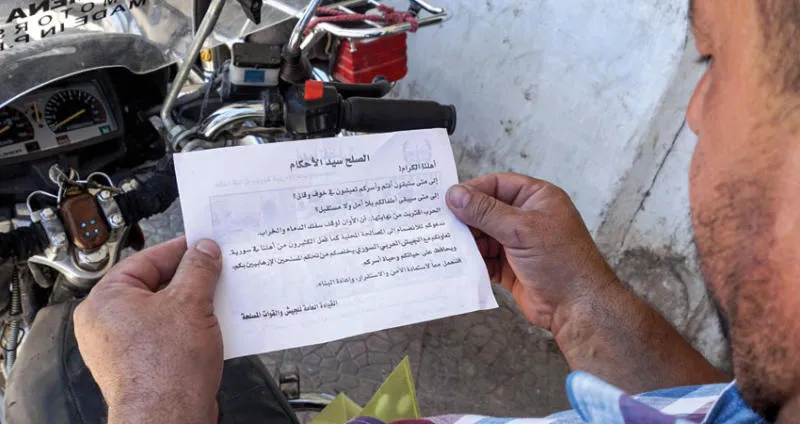 الصلح سيد الأحكام
أهلنا الكرام!
إلى متى ستبقون أنتم وأسركم تعيشون في خوف وقلق؟
إلى متى سيبقى أطفالكم بلا أمل ولا مستقبل؟
الحرب اقتربت من نهايتها، آن الأوان لوقف سفك الدماء والخراب.
ندعوكم للانضمام إلى المصالحة المحلية كما فعل الكثيرون من أهلنا في سورية.
تعاونكم مع الجيش العربي السوري يخلصكم من تحكم المسلحين الإرهابيين بكم،
ويحافظ على حياتكم وحياة أسركم.
فلنعمل معاً لاستعادة الأمن والاستقرار، وإعادة البناء.
القيادة العامة للجيش والقوات المسلحة
MADE IN